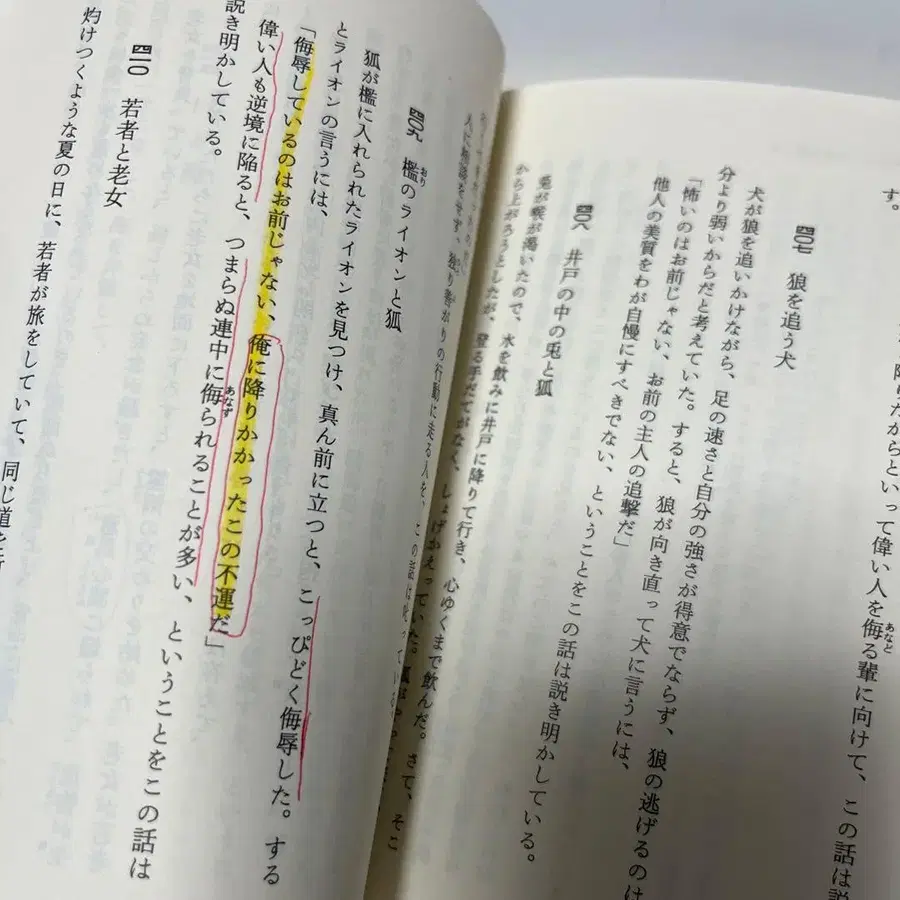 す。
降りたからといって偉い人を侮る輩に向けて、この話は説
あなど
四〇七　狼を追う犬
犬が狼を追いかけながら、足の速さと自分の強さが得意でならず、狼の逃げるのは
分より弱いからだと考えていた。すると、狼が向き直って犬に言うには、
「怖いのはお前じゃない、お前の主人の追撃だ」
他人の美質をわが自慢にすべきでない、ということをこの話は説き明かしている。
四〇八　井戸の中の兎と狐
兎が喉が渇いたので、水を飲みに井戸に降りて行き、心ゆくまで飲んだ。さて、そこ
から上がろうとしたが、登る手だてがなく、しょげかえっていた。狐が
独り善がりの行動に走る人を、この話は
四〇九　檻のライオンと狐
おり
狐が檻に入れられたライオンを見つけ、真ん前に立つと、こっぴどく侮辱した。する
とライオンの言うには、
「侮辱しているのはお前じゃない、俺に降りかかったこの不運だ」
偉い人も逆境に陥ると、つまらぬ連中に侮られることが多い、ということをこの話は
あなず
説き明かしている。
四一〇　若者と老女
灼けつくような夏の日に、若者が旅をしていて、同じ道を